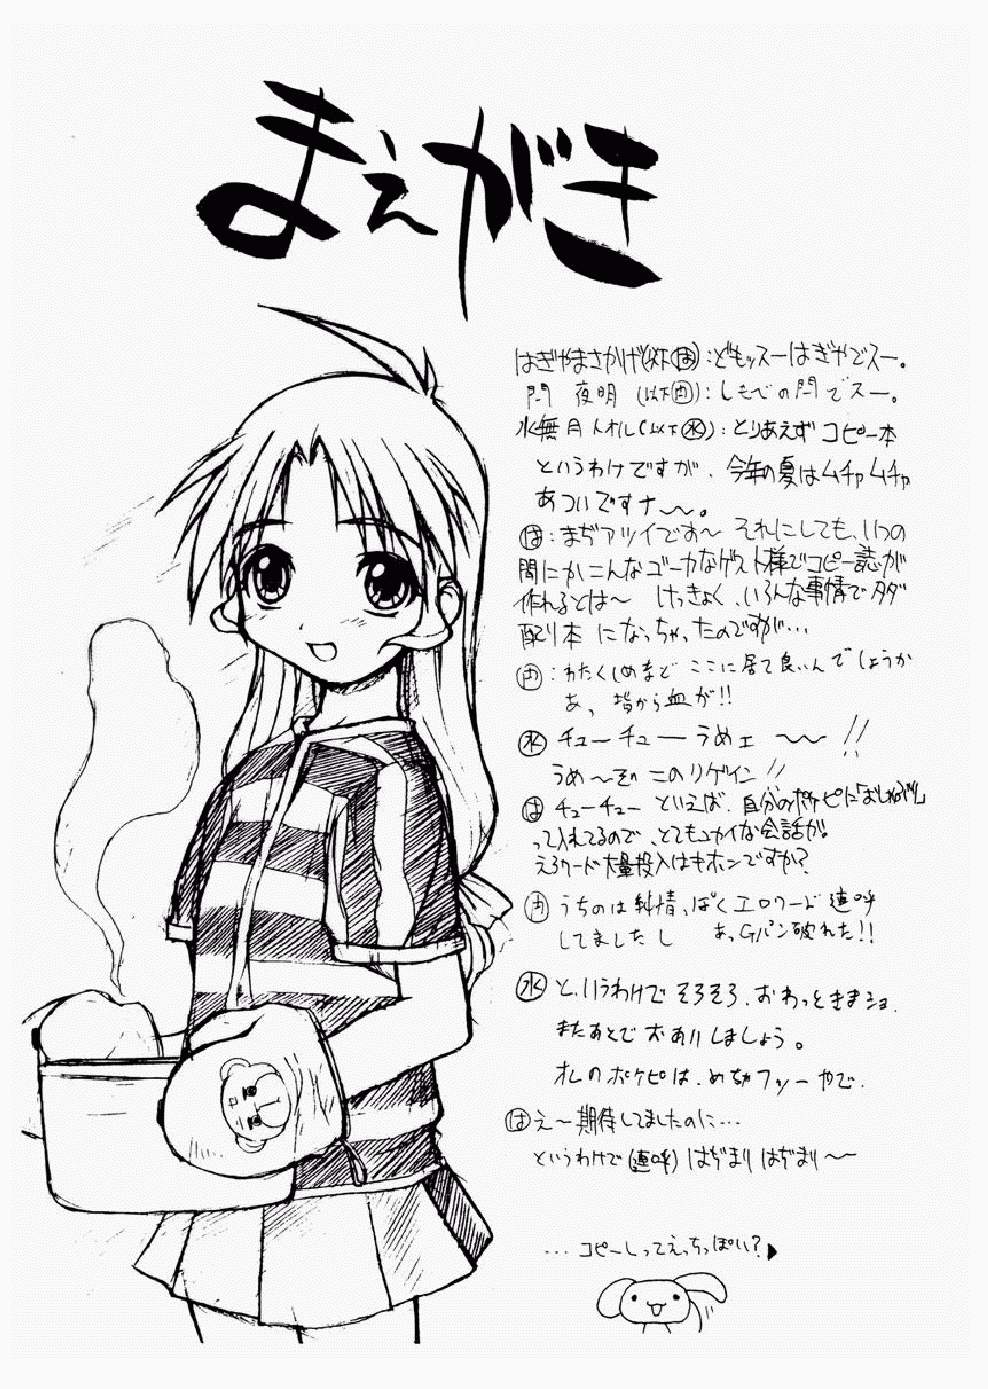 まえがき
はぎやまさかげ(以下は):どもッスーはぎやでスー。
門 夜明 (以下門):しもべの門でスー。
水無月トオル(以下水):とりあえずコピー本
というわけですが、今年の夏はムチャムチャ
あついですナ〜〜。
は:まぢアツイでお〜 それにしても、いつの
間にかこんなゴーカなゲスト様でコピー誌が
作れるとは〜 けっきょく、いろんな事情でタダ
配り本 になっちゃったのですが…
門:わたくしめまで ここに居て良いんでしょうか
あっ 指から血が!!
水 チューチューうめェ 〜〜 !!
うめ〜ぞ このリゲイン!!
は チューチュー といえば、自分のポケピに
って入れてるので、とてもユカイな会話が。
えろワード大量投入はキホンですか?
門 うちのは純情っぽくエロワード連呼
してましたし あっGパン破れた!!
水 と、いうわけで そろそろ、おわっときまショ.
またあとで お会いしましょう。
オレのポケピは、めちゃフツーやで.
は え〜期待してましたのに…
というわけで(連呼) はぢまり はぢまり〜〜
…コピーしってえっちっぽい?